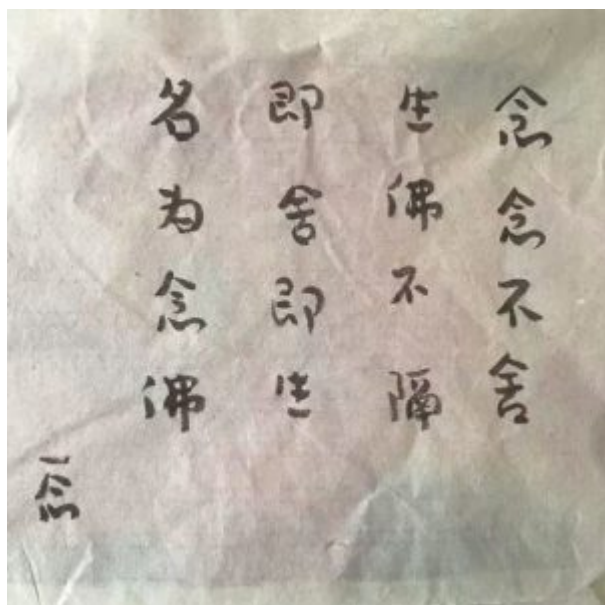 念念不舍
生佛不隔
即舍即生
名为念佛
一念